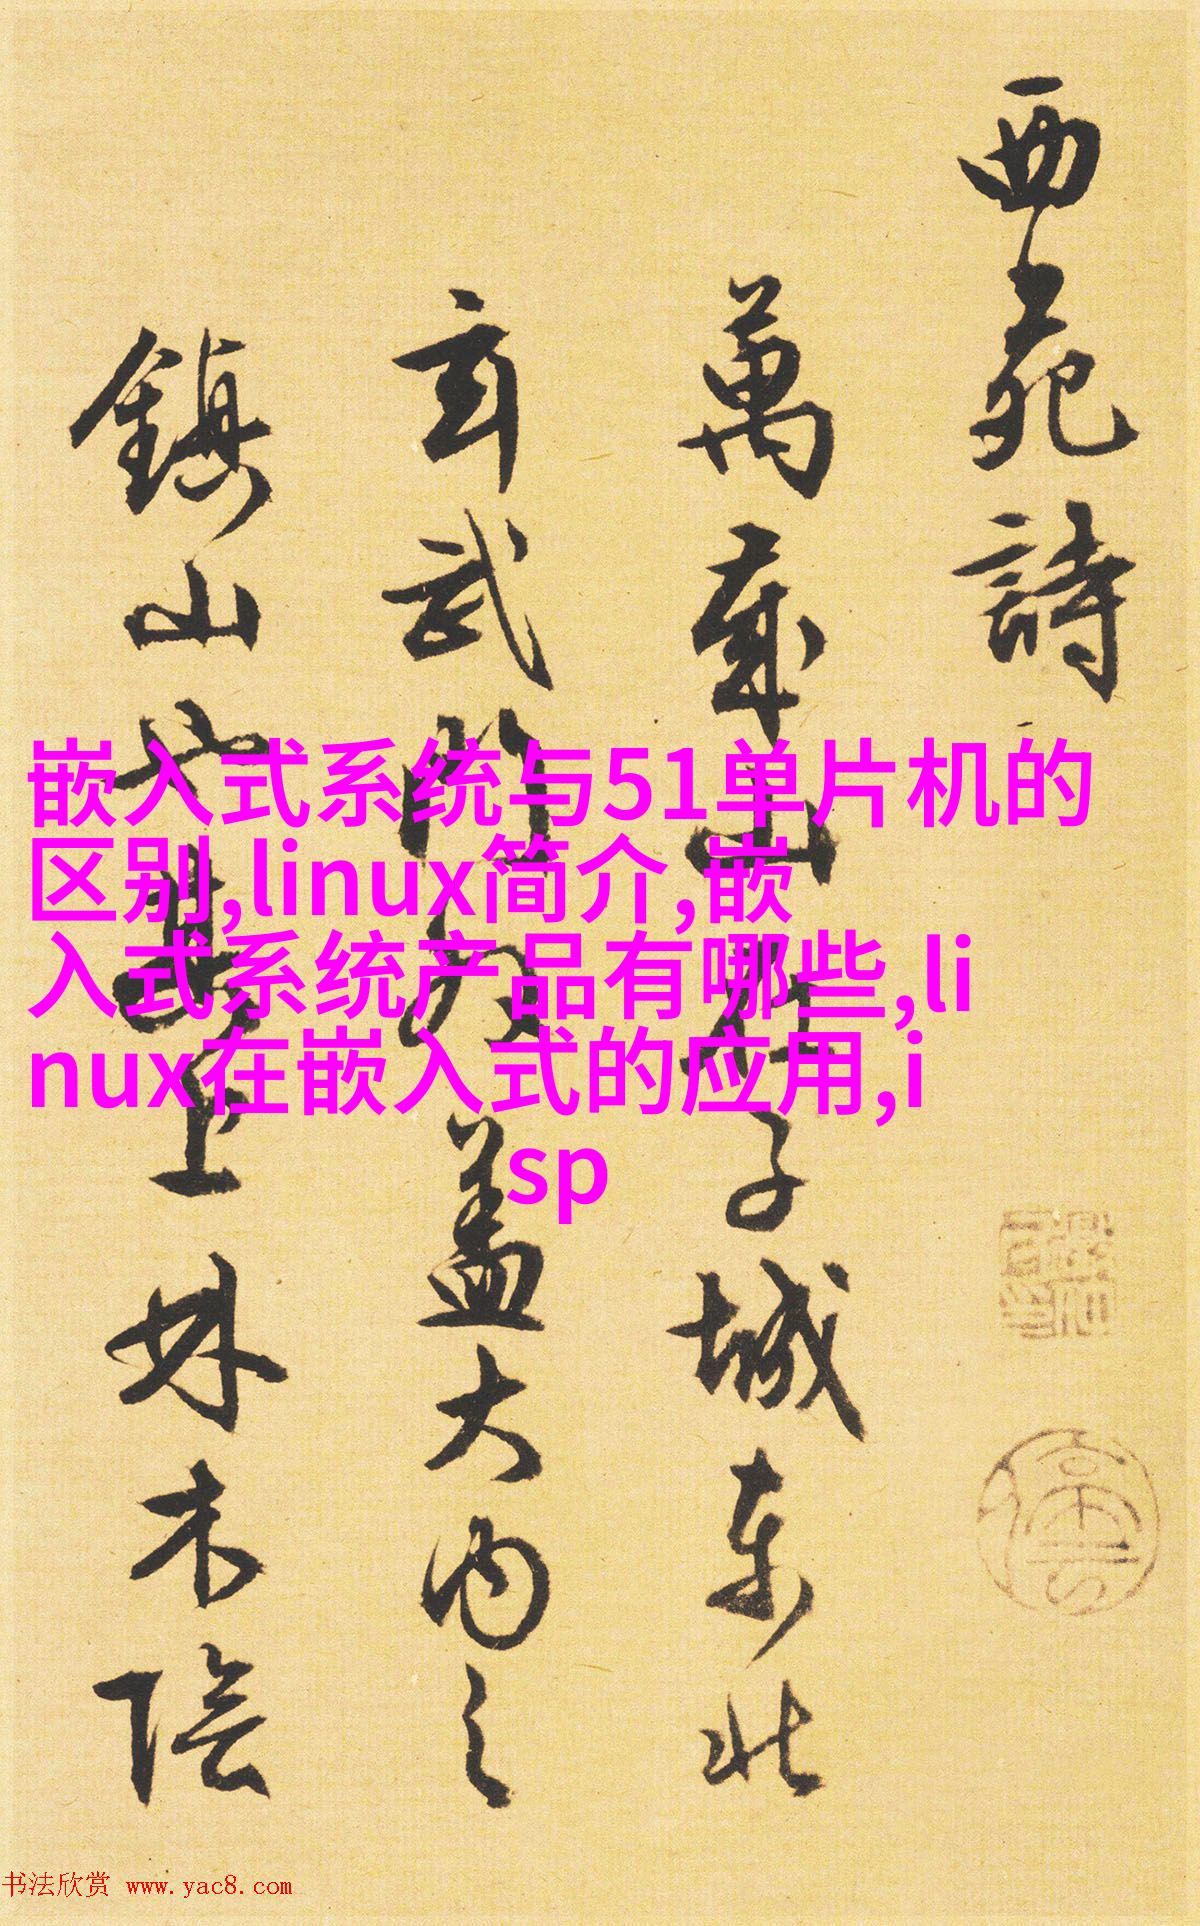 西苑詩
萬歲山在子城東北
玄武門外蓋大內之
鎮山也其上林木陰
嵌入式系统与51单片机的
区别,linux简介,嵌
入式系统产品有哪些,li
nux在嵌入式的应用,i
sp
书法欣赏 www.yac8.com